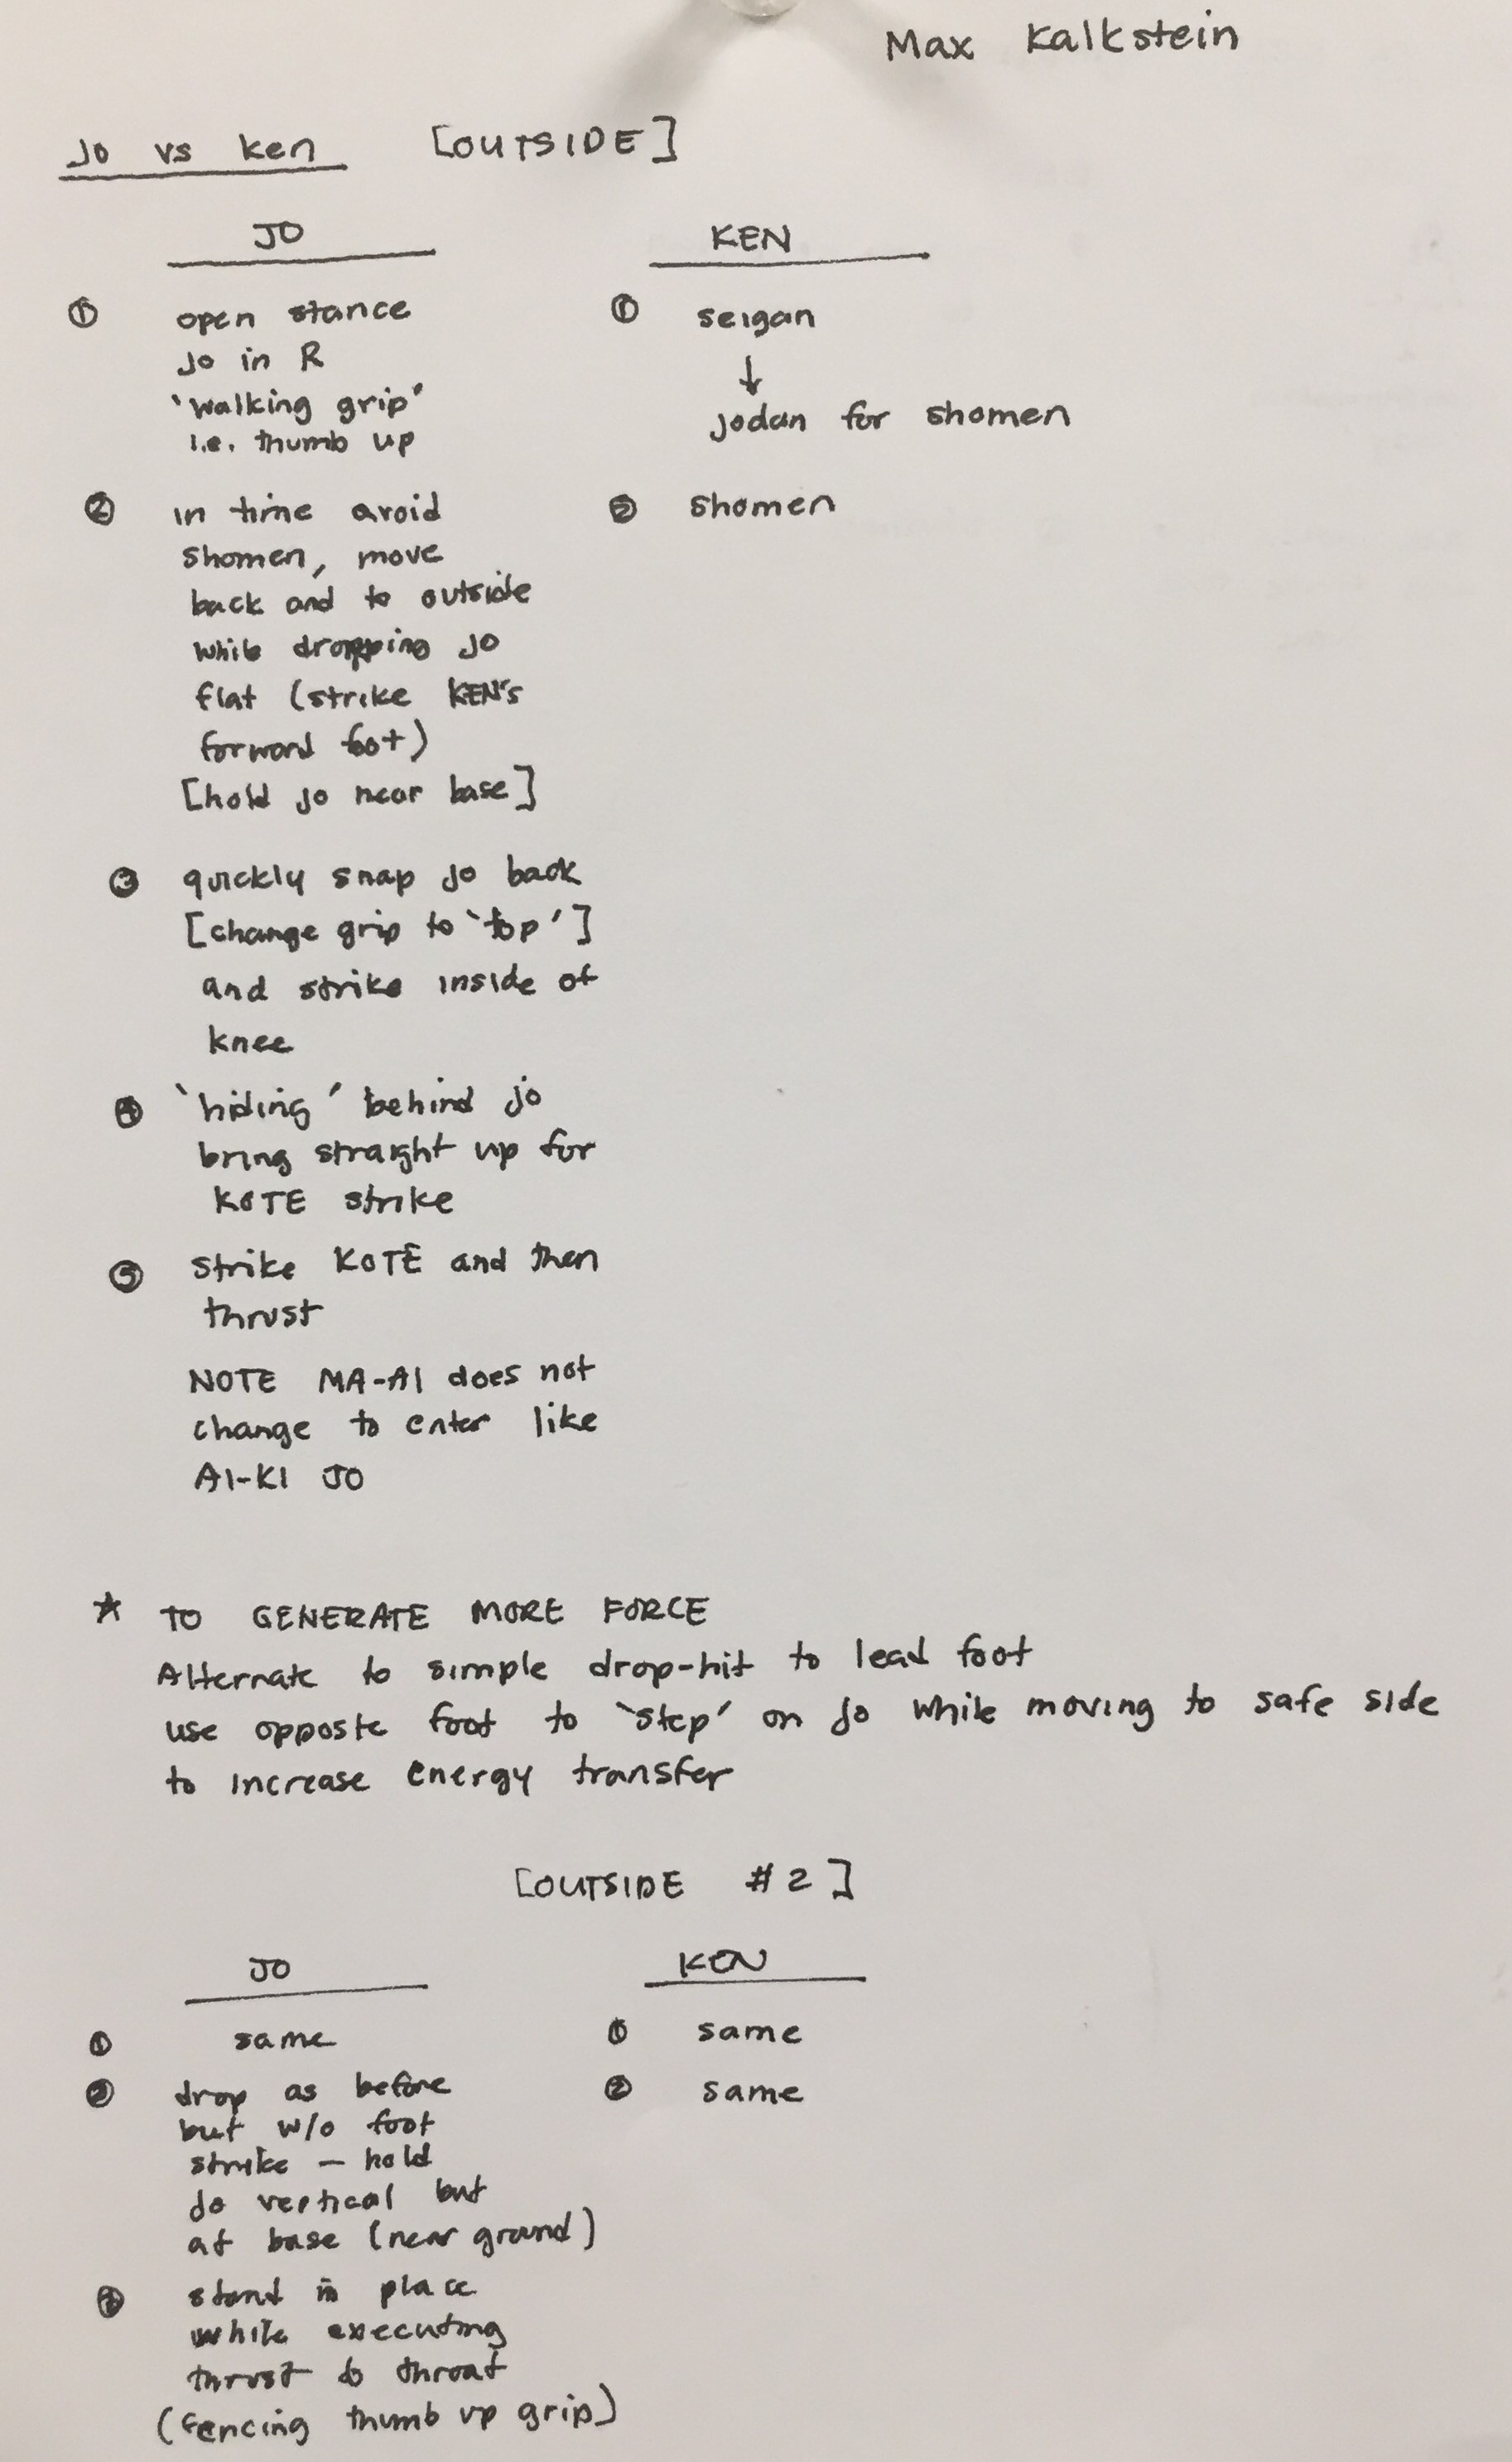 Max Kalkstein
Jo vs ken [OUTSIDE]
JO
KEN
① open stance
Jo in R
'walking grip'
i.e. thumb up
① seigan
↓
jodan for shomen
② in time avoid
shomen, move
back and to outside
while dropping jo
flat (strike KEN's
forward foot)
[hold jo near base]
② shomen
③ quickly snap jo back
[change grip to 'top']
and strike inside of
knee
④ 'hiding' behind jo
bring straight up for
KOTE strike
⑤ strike KOTE and then
thrust
NOTE MA-AI does not
change to enter like
AI-KI JO
★ TO GENERATE MORE FORCE
Alternate to simple drop-hit to lead foot
use opposite foot to 'step' on jo while moving to safe side
to increase energy transfer
[OUTSIDE #2]
JO
KEN
① same
① same
② drop as before
but w/o foot
strike – hold
jo vertical but
at base (near ground)
② same
③ stand in place
while executing
thrust to throat
(fencing thumb up grip)